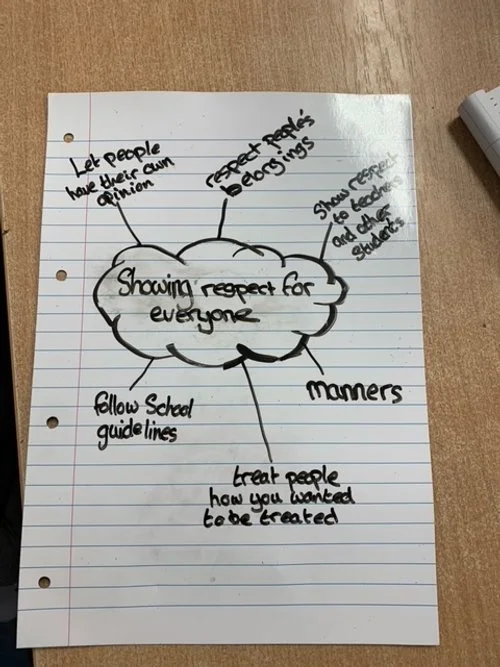 Let people
have their own
opinion
respect people's
belongings
Show respect
to teachers
and other
students
Showing respect for
everyone
manners
follow School
guidelines
treat people
how you wanted
to be treated